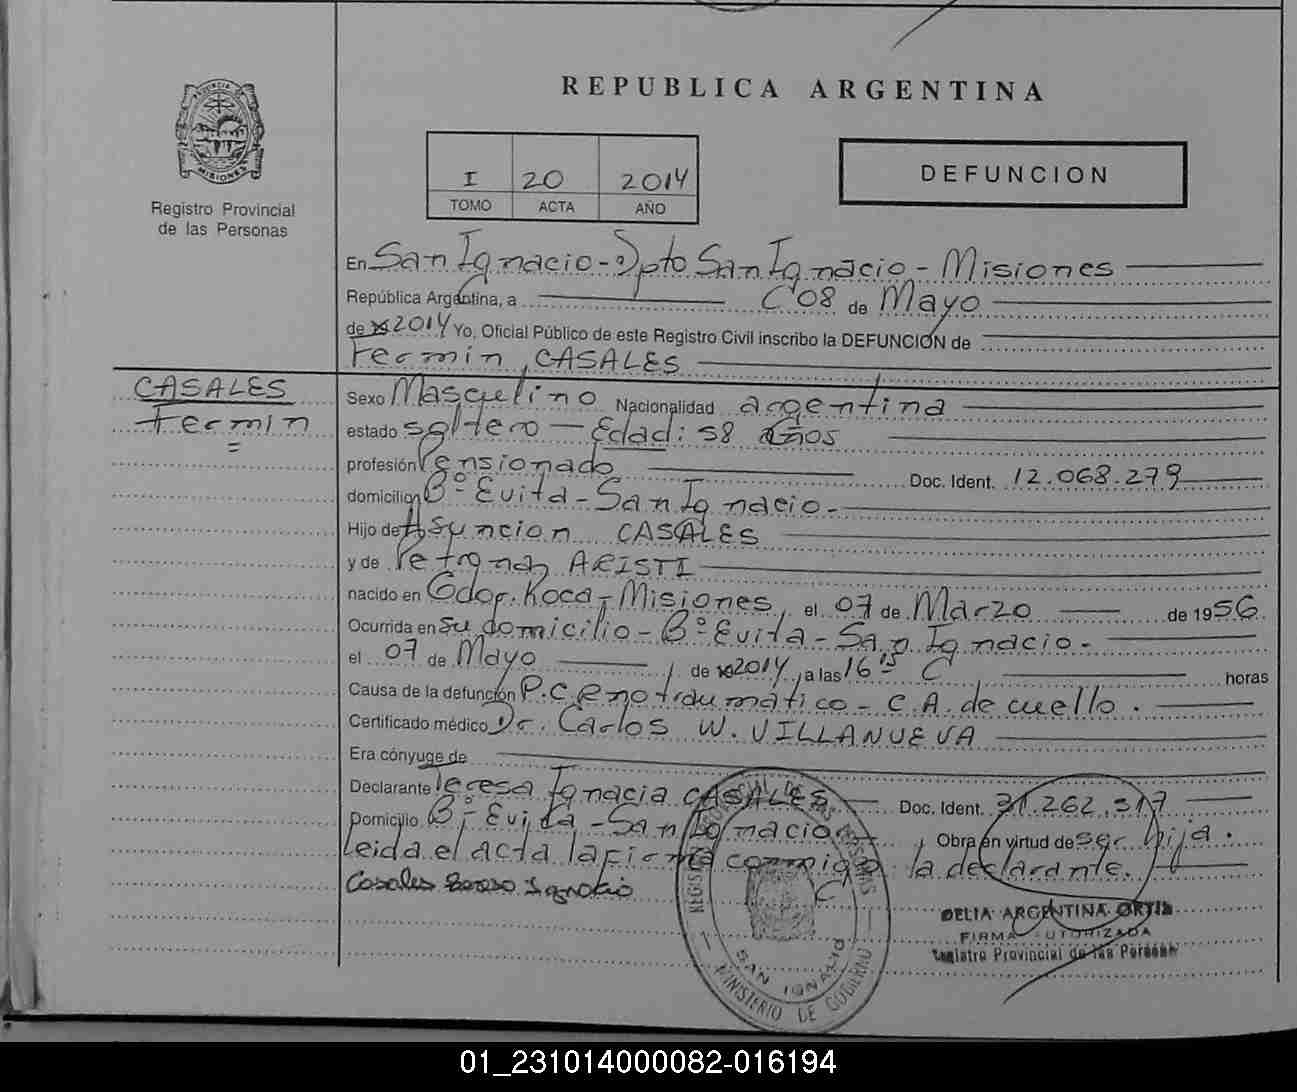 REPUBLICA ARGENTINA
PROVINCIA DE MISIONES
Registro Provincial
de las Personas
I 20 2014
TOMO ACTA AÑO
DEFUNCION
En San Ignacio - Dpto San Ignacio - Misiones
República Argentina, a 08 de Mayo
de 2014 Yo, Oficial Público de este Registro Civil inscribo la DEFUNCIÓN de
Fermin, CASALES
CASALES
Fermin
Sexo Masculino Nacionalidad argentina
estado soltero - Edad: 58 años
profesión Pensionado Doc. Ident. 12.068.279
domicilio Bº Evita - San Ignacio.-
Hijo de Asuncion CASALES
y de Petrona ARISTI
nacido en Gdor. Roca - Misiones, el 07 de Marzo de 1956
Ocurrida en su domicilio - Bº Evita - San Ignacio.-
el 07 de Mayo de 2014, a las 16 15 horas
Causa de la defunción P.C.R no traumático - C.A. de cuello.
Certificado médico Dr. Carlos W. VILLANUEVA
Era cónyuge de
Declarante Teresa Ignacia CASALES Doc. Ident. 31.262.317
Domicilio Bº Evita - San Ignacio, Obra en virtud de ser hija.
Leida el acta la firma conmigo la declarante.
Casales Teresa Ignacia
REGISTRO PROVINCIAL DE LAS PERSONAS
SAN IGNACIO
MINISTERIO DE GOBIERNO
DELIA ARGENTINA ORTIZ
FIRMA AUTORIZADA
Registro Provincial de las Personas
01_231014000082-016194